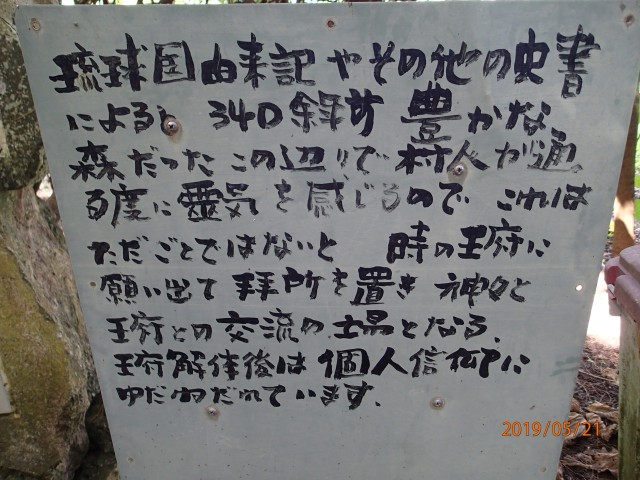 琉球国由来記やその他の史書
によると 340余年前 豊かな
森だったこの辺りで村人が通
る度に霊気を感じるので これは
ただごとではないと 時の王府に
願い出て拝所を置き 神々と
王府との交流の場となる.
王府解体後は個人信仰に
ゆだねられています.
2019/05/21